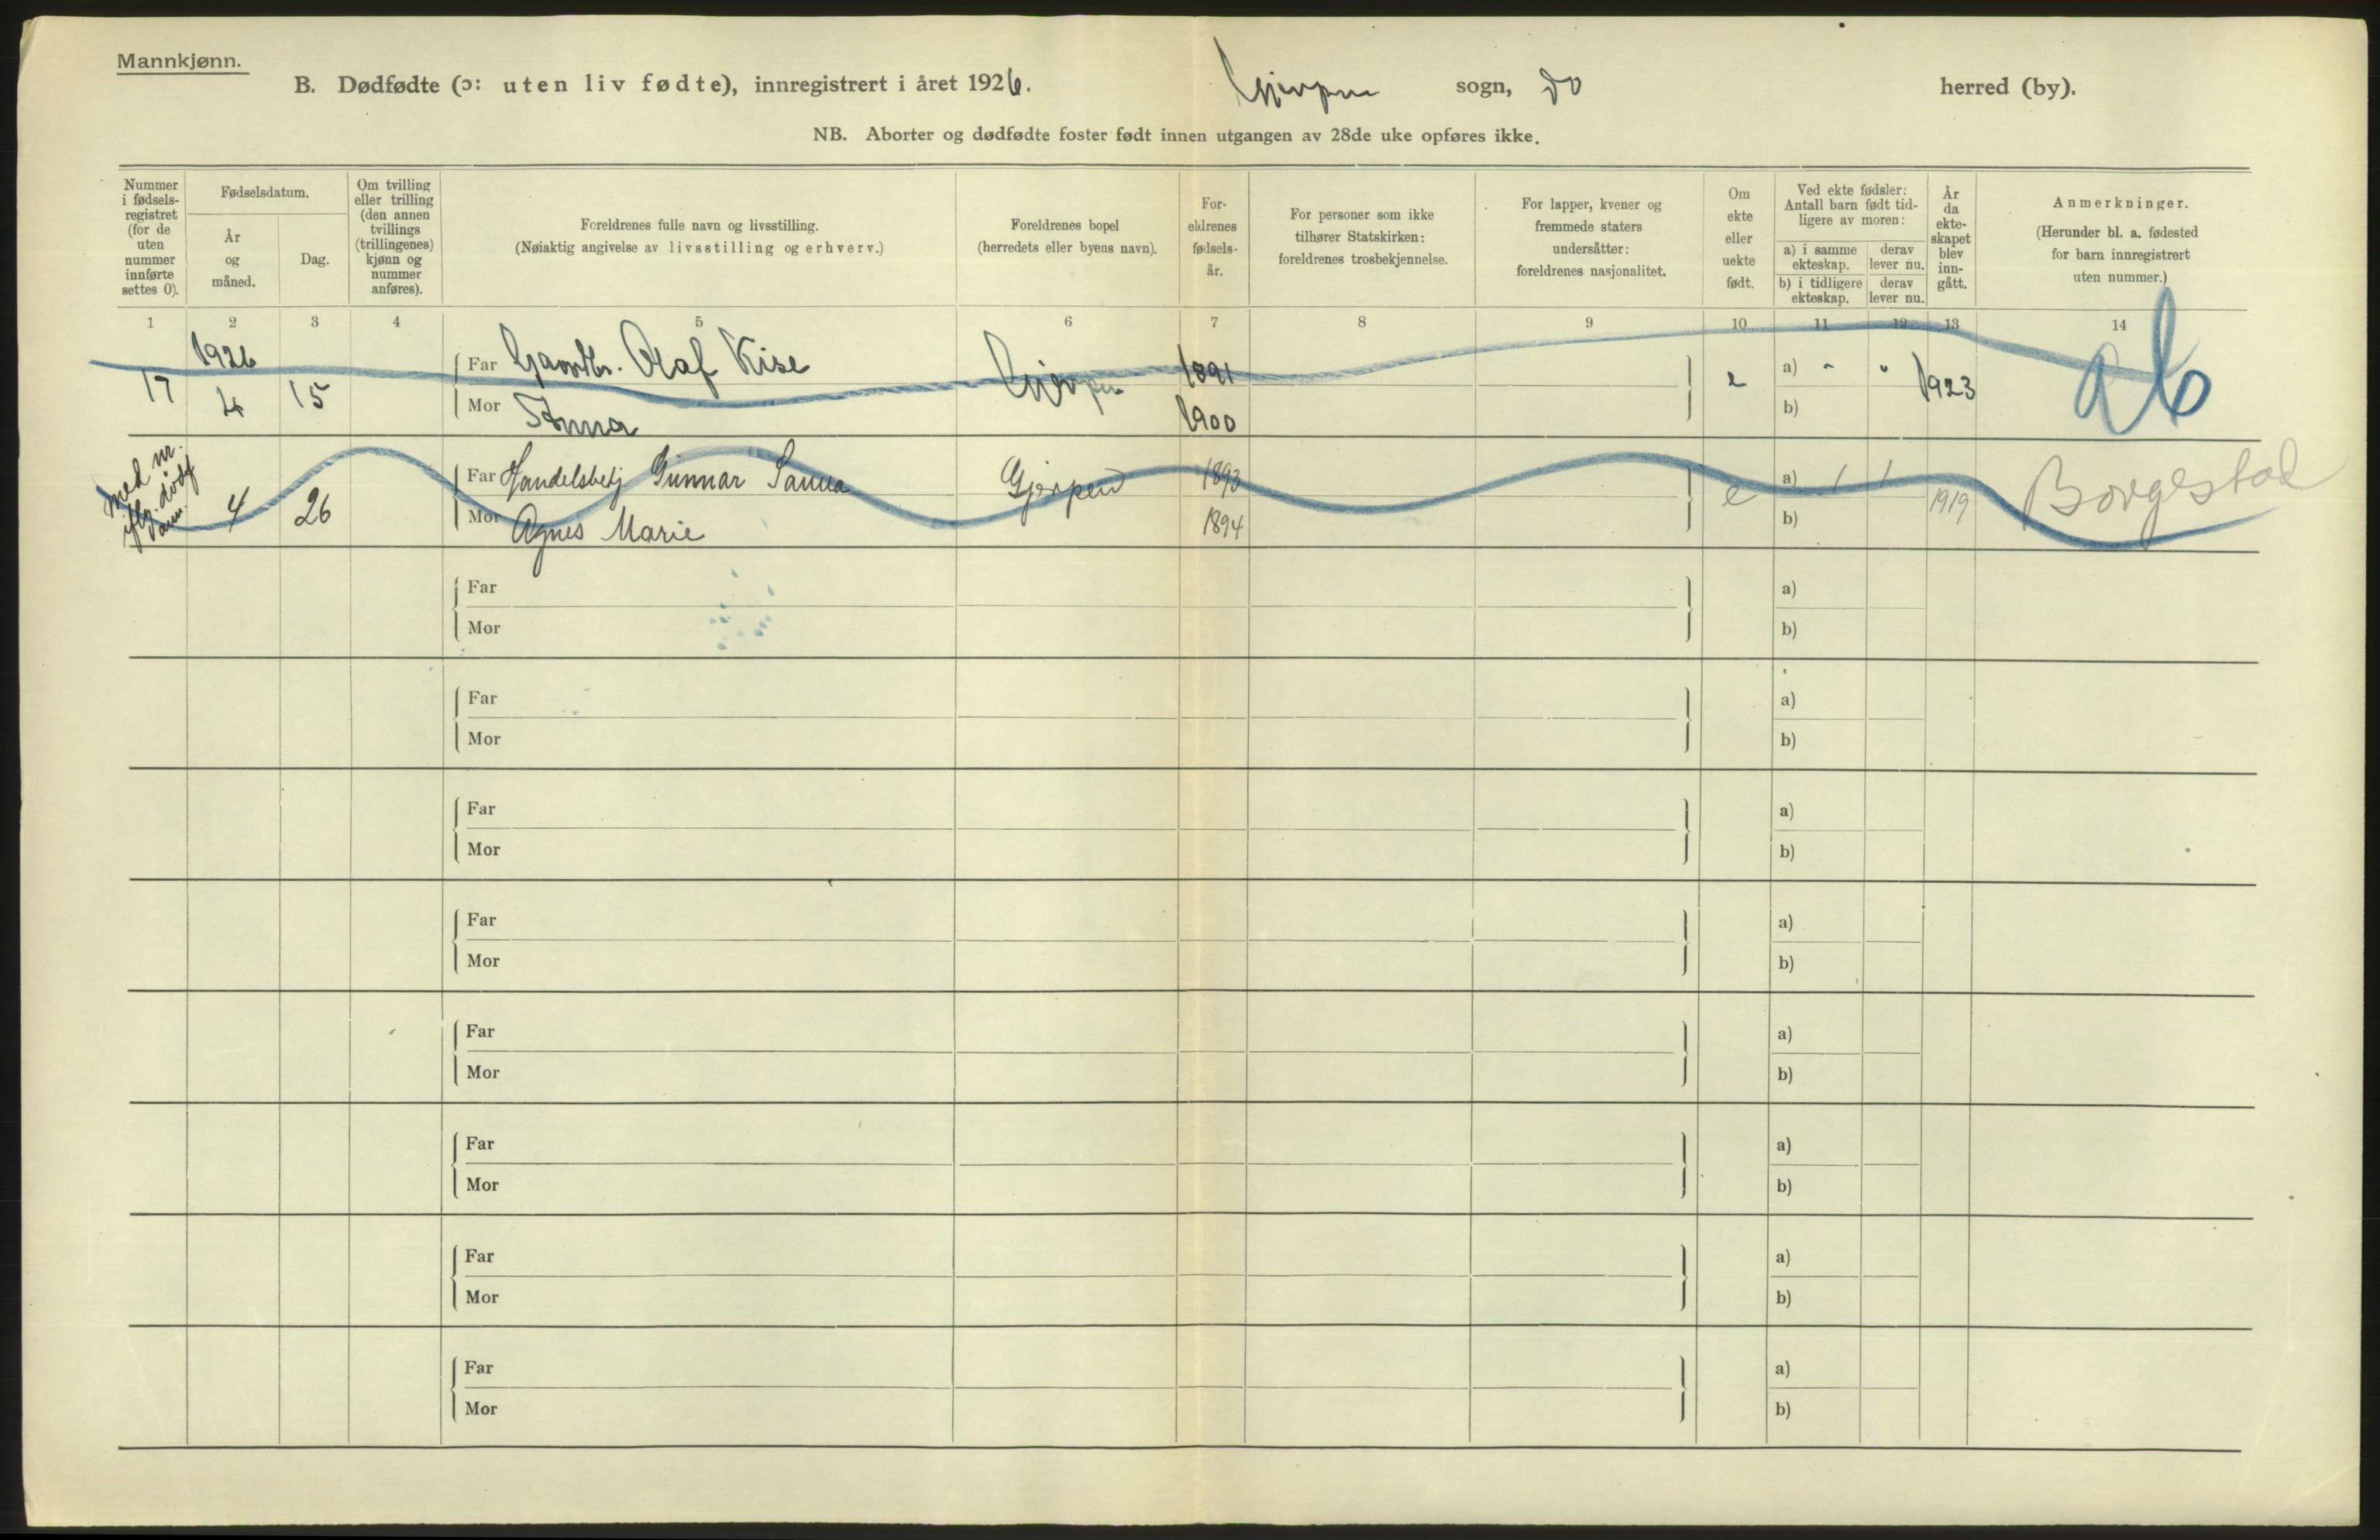 Mannkjønn.
B. Dødfødte (ɔ: uten liv fødte), innregistrert i året 1926. Gjerpen sogn, do herred (by).
NB. Aborter og dødfødte foster født innen utgangen av 28de uke opføres ikke.
Nummer i fødsels-registret (for de uten nummer innførte settes 0).
Fødselsdatum.
År og måned.
Dag.
Om tvilling eller trilling (den annen tvillings (trillingenes) kjønn og nummer anføres).
Foreldrenes fulle navn og livsstilling.
(Nøiaktig angivelse av livsstilling og erhverv.)
Foreldrenes bopel
(herredets eller byens navn).
For-eldrenes fødsels-år.
For personer som ikke tilhører Statskirken: foreldrenes trosbekjennelse.
For lapper, kvener og fremmede staters undersåtter: foreldrenes nasjonalitet.
Om ekte eller uekte født.
Ved ekte fødsler: Antall barn født tid-ligere av moren:
a) i samme ekteskap. derav lever nu.
b) i tidligere ekteskap. derav lever nu.
År da ekte-skapet blev inn-gått.
Anmerkninger.
(Herunder bl. a. fødested for barn innregistrert uten nummer.)
1 2 3 4 5 6 7 8 9 10 11 12 13 14
1926
17 4 15 Far Olaf Kise Gjerpen 1891 e a) " " 1923
Mor Anna 1900 b)
med nr.
4 26 Far Handelsbetj Gunnar Sanna Gjerpen 1893 e a) 1 1 1919 Borgestad
Mor Agnes Marie 1894 b)
Far a)
Mor b)
Far a)
Mor b)
Far a)
Mor b)
Far a)
Mor b)
Far a)
Mor b)
Far a)
Mor b)
Far a)
Mor b)
Far a)
Mor b)